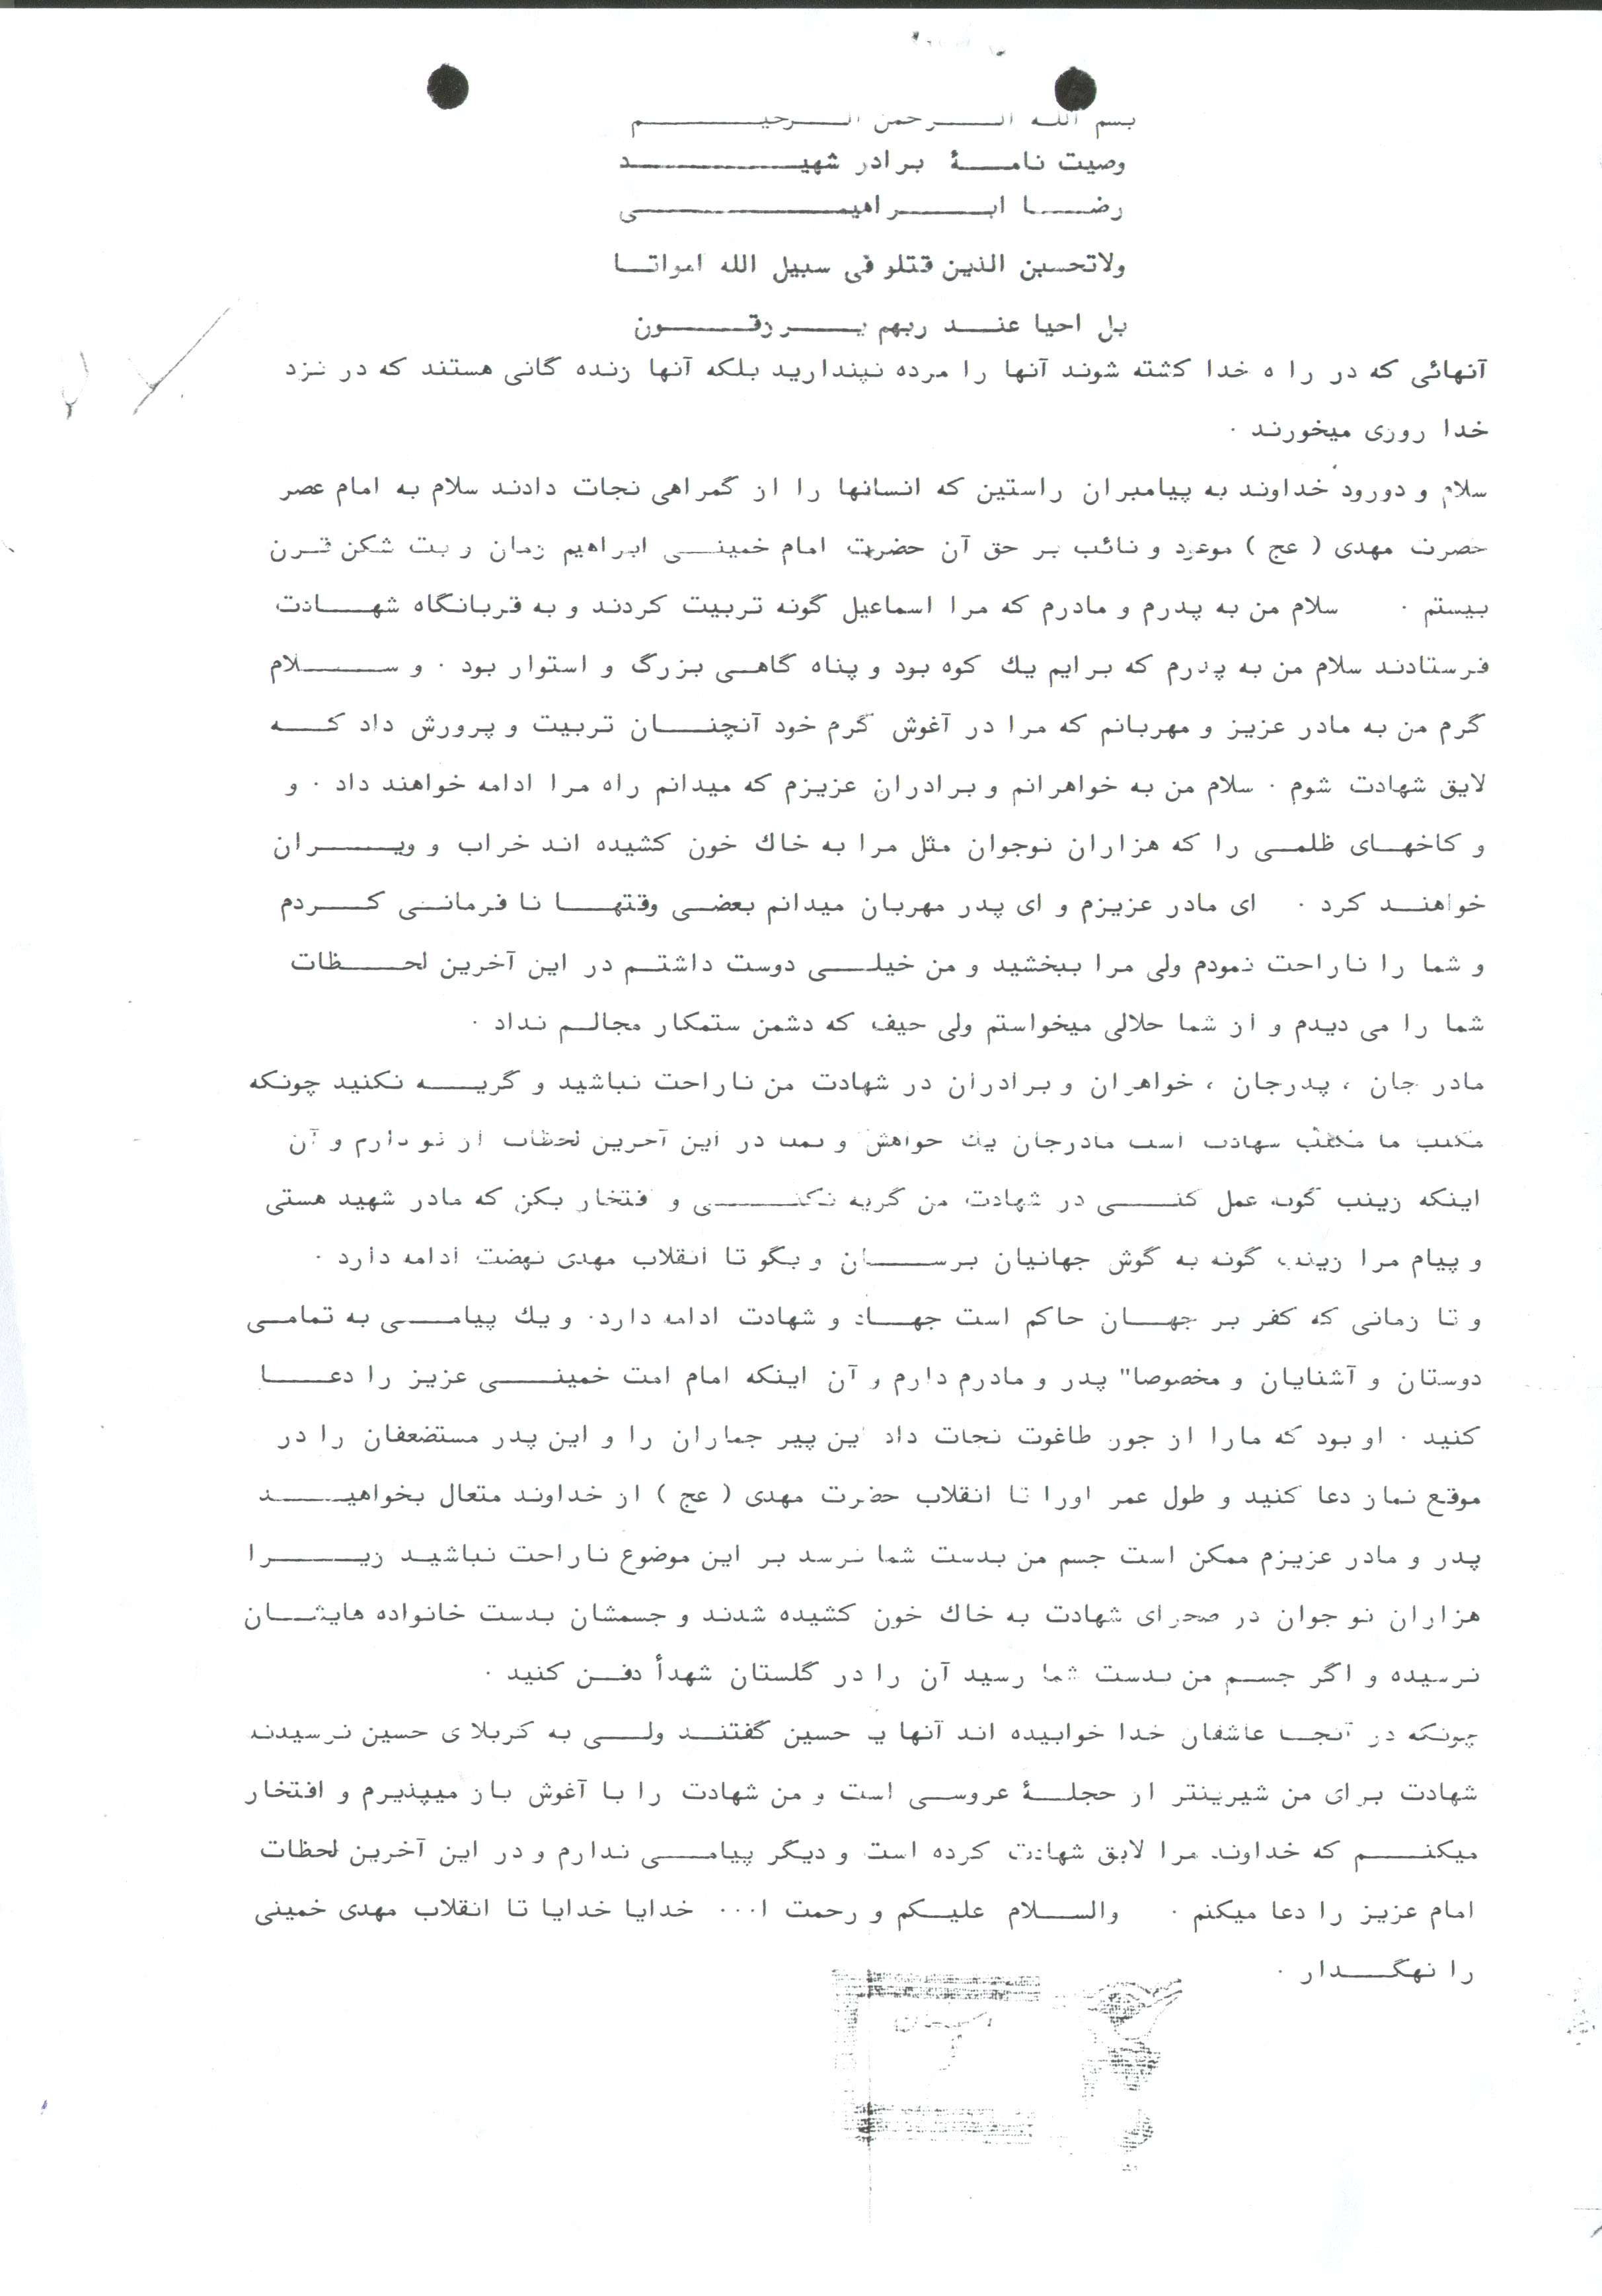 بسم الله الرحمن الرحیم
وصیت نامهٔ برادر شهید
رضا ابراهیمی
ولاتحسبن الذین قتلو فی سبیل الله امواتا
بل احیا عند ربهم یرزقون
آنهائی که در را ه خدا کشته شوند آنها را مرده نپندارید بلکه آنها زنده گانی هستند که در نزد
خدا روزی میخورند .
سلام و دورود خداوند به پیامبران راستین که انسانها را از گمراهی نجات دادند سلام به امام عصر
حضرت مهدی ( عج ) موعود و نائب بر حق آن حضرت امام خمینی ابراهیم زمان و بت شکن قرن
بیستم . سلام من به پدرم و مادرم که مرا اسماعیل گونه تربیت کردند و به قربانگاه شهادت
فرستادند سلام من به پدرم که برایم یك کوه بود و پناه گاهی بزرگ و استوار بود . و سلام
گرم من به مادر عزیز و مهربانم که مرا در آغوش گرم خود آنچنان تربیت و پرورش داد که
لایق شهادت شوم . سلام من به خواهرانم و برادران عزیزم که میدانم راه مرا ادامه خواهند داد . و
و کاخهای ظلمی را که هزاران نوجوان مثل مرا به خاك خون کشیده اند خراب و ویران
خواهند کرد . ای مادر عزیزم و ای پدر مهربان میدانم بعضی وقتها نا فرمانی کردم
و شما را ناراحت نمودم ولی مرا ببخشید و من خیلی دوست داشتم در این آخرین لحظات
شما را می دیدم و از شما حلالی میخواستم ولی حیف که دشمن ستمکار مجالم نداد .
مادر جان ، پدرجان ، خواهران و برادران در شهادت من ناراحت نباشید و گریه نکنید چونکه
مکتب ما مکتب شهادت است مادرجان یك خواهش و تمنا در این آخرین لحظات از تو دارم و آن
اینکه زینب گونه عمل کنی در شهادت من گریه نکنی و افتخار بکن که مادر شهید هستی
و پیام مرا زینب گونه به گوش جهانیان برسان و بگو تا انقلاب مهدی نهضت ادامه دارد .
و تا زمانی که کفر بر جهان حاکم است جهاد و شهادت ادامه دارد. و یك پیامی به تمامی
دوستان و آشنایان و مخصوصا" پدر و مادرم دارم و آن اینکه امام امت خمینی عزیز را دعا
کنید . او بود که مارا از جور طاغوت نجات داد این پیر جماران را و این پدر مستضعفان را در
موقع نماز دعا کنید و طول عمر اورا تا انقلاب حضرت مهدی ( عج ) از خداوند متعال بخواهید
پدر و مادر عزیزم ممکن است جسم من بدست شما نرسد بر این موضوع ناراحت نباشید زیرا
هزاران نو جوان در صحرای شهادت به خاك خون کشیده شدند و جسمشان بدست خانواده هایشان
نرسیده و اگر جسم من بدست شما رسید آن را در گلستان شهدأ دفن کنید .
چونکه در آنجا عاشقان خدا خوابیده اند آنها یا حسین گفتند ولی به کربلا ی حسین نرسیدند
شهادت برای من شیرینتر از حجلهٔ عروسی است و من شهادت را با آغوش باز میپذیرم و افتخار
میکنم که خداوند مرا لایق شهادت کرده است و دیگر پیامی ندارم و در این آخرین لحظات
امام عزیز را دعا میکنم . والسلام علیکم و رحمت ا... خدایا خدایا تا انقلاب مهدی خمینی
را نهگدار .